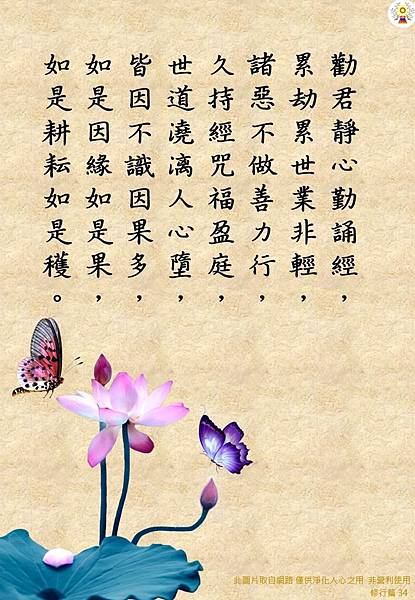 勸君靜心勤誦經，
累劫累世業非輕，
諸惡不做善力行，
久持經咒福盈庭，
世道澆漓人心墮，
皆因不識因果多，
如是因緣如是果，
如是耕耘如是穫。
此圖片取自網路 僅供淨化人心之用 非營利使用
修行篇 34